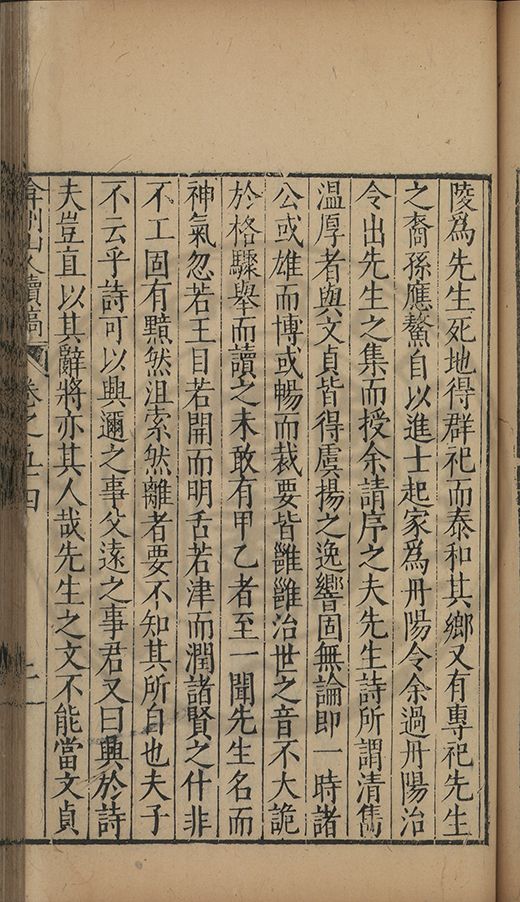 陵爲先生死地得群祀而泰和其鄉又有專祀先生
之裔孫應鰲自以進士起家爲丹陽令余過丹陽治
令出先生之集而授余請序之夫先生詩所謂清雋
温厚者與文貞皆得虞揚之逸響固無論即一時諸
公或雄而博或暢而裁要皆雝雝治世之音不大詭
於格驟舉而讀之未敢有甲乙者至一聞先生名而
神氣忽若王目若開而明舌若津而潤諸賢之什非
不工固有黯然沮索然離者要不知其所自也夫子
不云乎詩可以興邇之事父遠之事君又曰興於詩
夫豈直以其辭將亦其人哉先生之文不能當文貞
山人續稿 卷之五十四